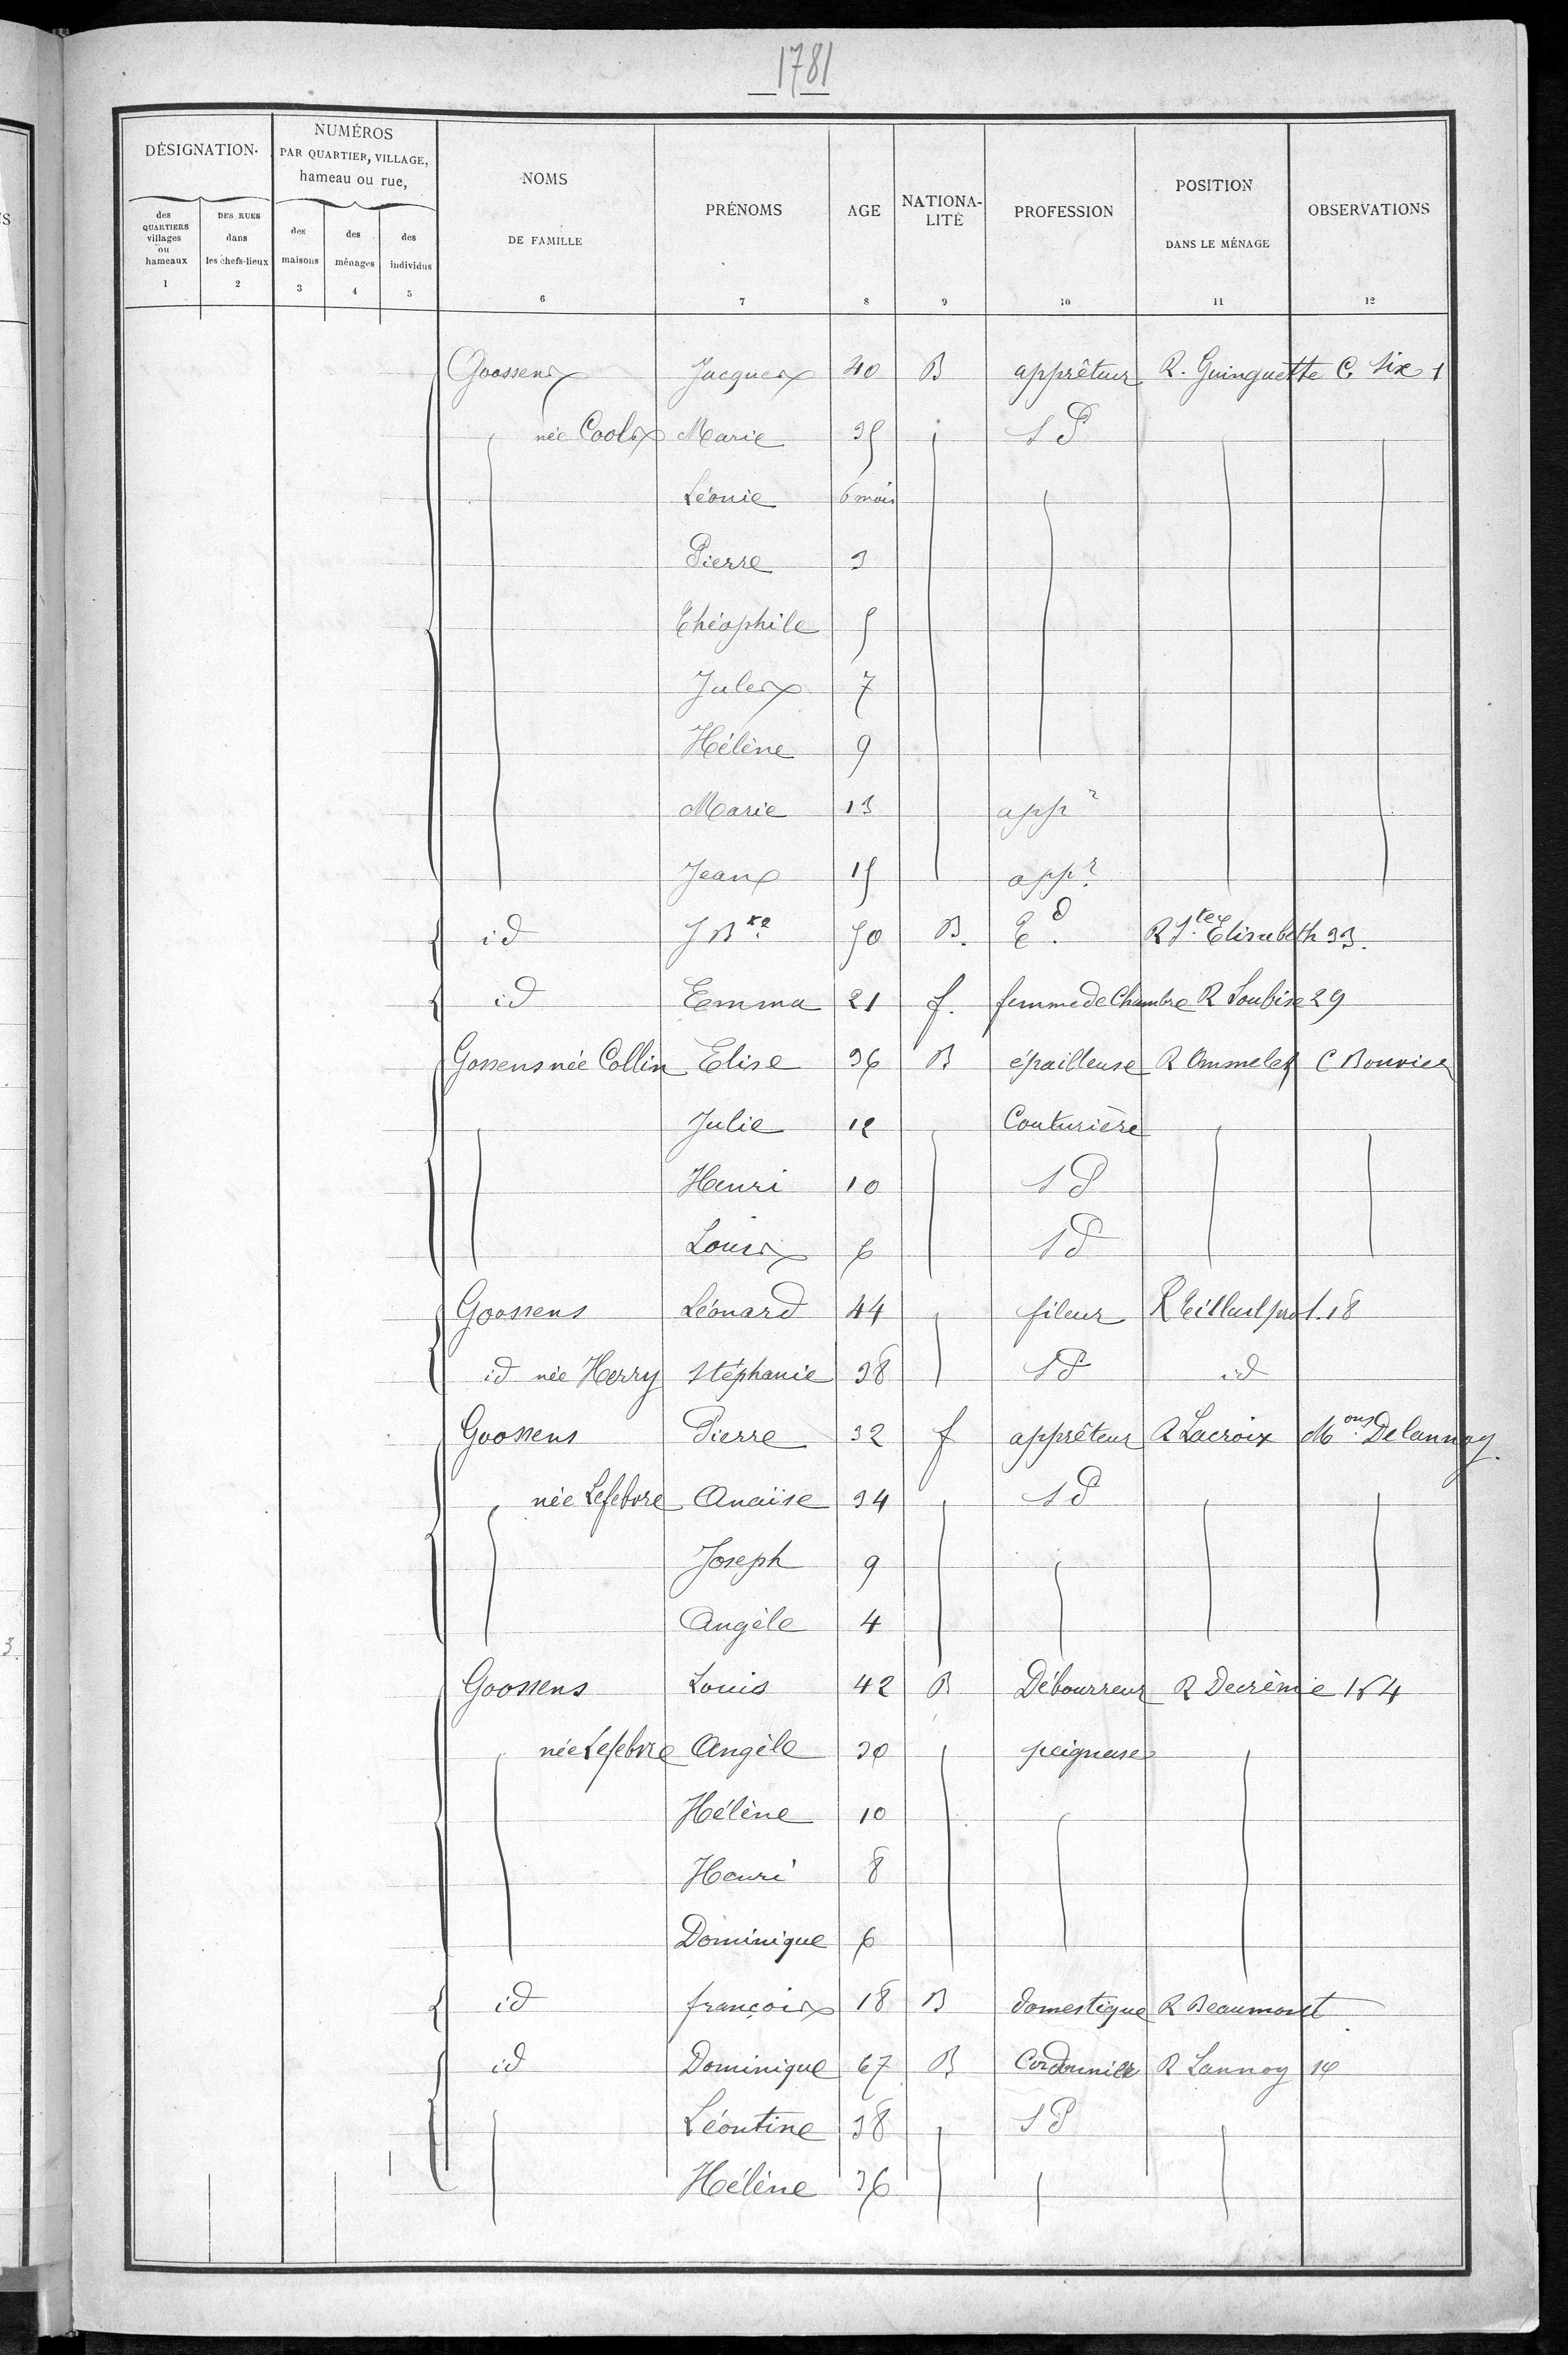 1781
DÉSIGNATION
NUMÉROS PAR QUARTIER, VILLAGE, hameau ou rue,
NOMS DE FAMILLE
PRÉNOMS
AGE
NATIONA-LITÉ
PROFESSION
POSITION DANS LE MÉNAGE
OBSERVATIONS
des QUARTIERS villages ou hameaux
DES RUES dans les chefs-lieux
des maisons
des ménages
des individus
1 2 3 4 5 6 7 8 9 10 11 12
Goossens Jacques 40 B apprêteur R. Guinguette C. Six 1
née Cools Marie 35 S P
Léonie 6 mois
Pierre 3
Théophile 5
Jules 7
Hélène 9
Marie 13 appr
Jean 15 appr
id J Bte 50 B. Ed. R Ste Elisabeth 33.
id Emma 21 f. femme de Chambre R Soubise 29
Gossens née Collin Elise 36 B épailleuse R Ommelet C Bouvier
Julie 12 Couturière
Henri 10 S P
Louis 6 S P
Goossens Léonard 44 fileur R Tilleul prol. 18
id née Herry Stéphanie 38 S P id
Goossens Pierre 32 f apprêteur R Lacroix Mons Delannoy.
née Lefebvre Anaïse 34 S P
Joseph 9
Angèle 4
Goossens Louis 42 B Débourreur R Decrème 154
née Lefebvre Angèle 30 peigneuse
Hélène 10
Henri 8
Dominique 6
id françois 18 B domestique R Beaumont
id Dominique 67 B Cordonnier R Lannoy 14
Léontine 38 S P
Hélène 36